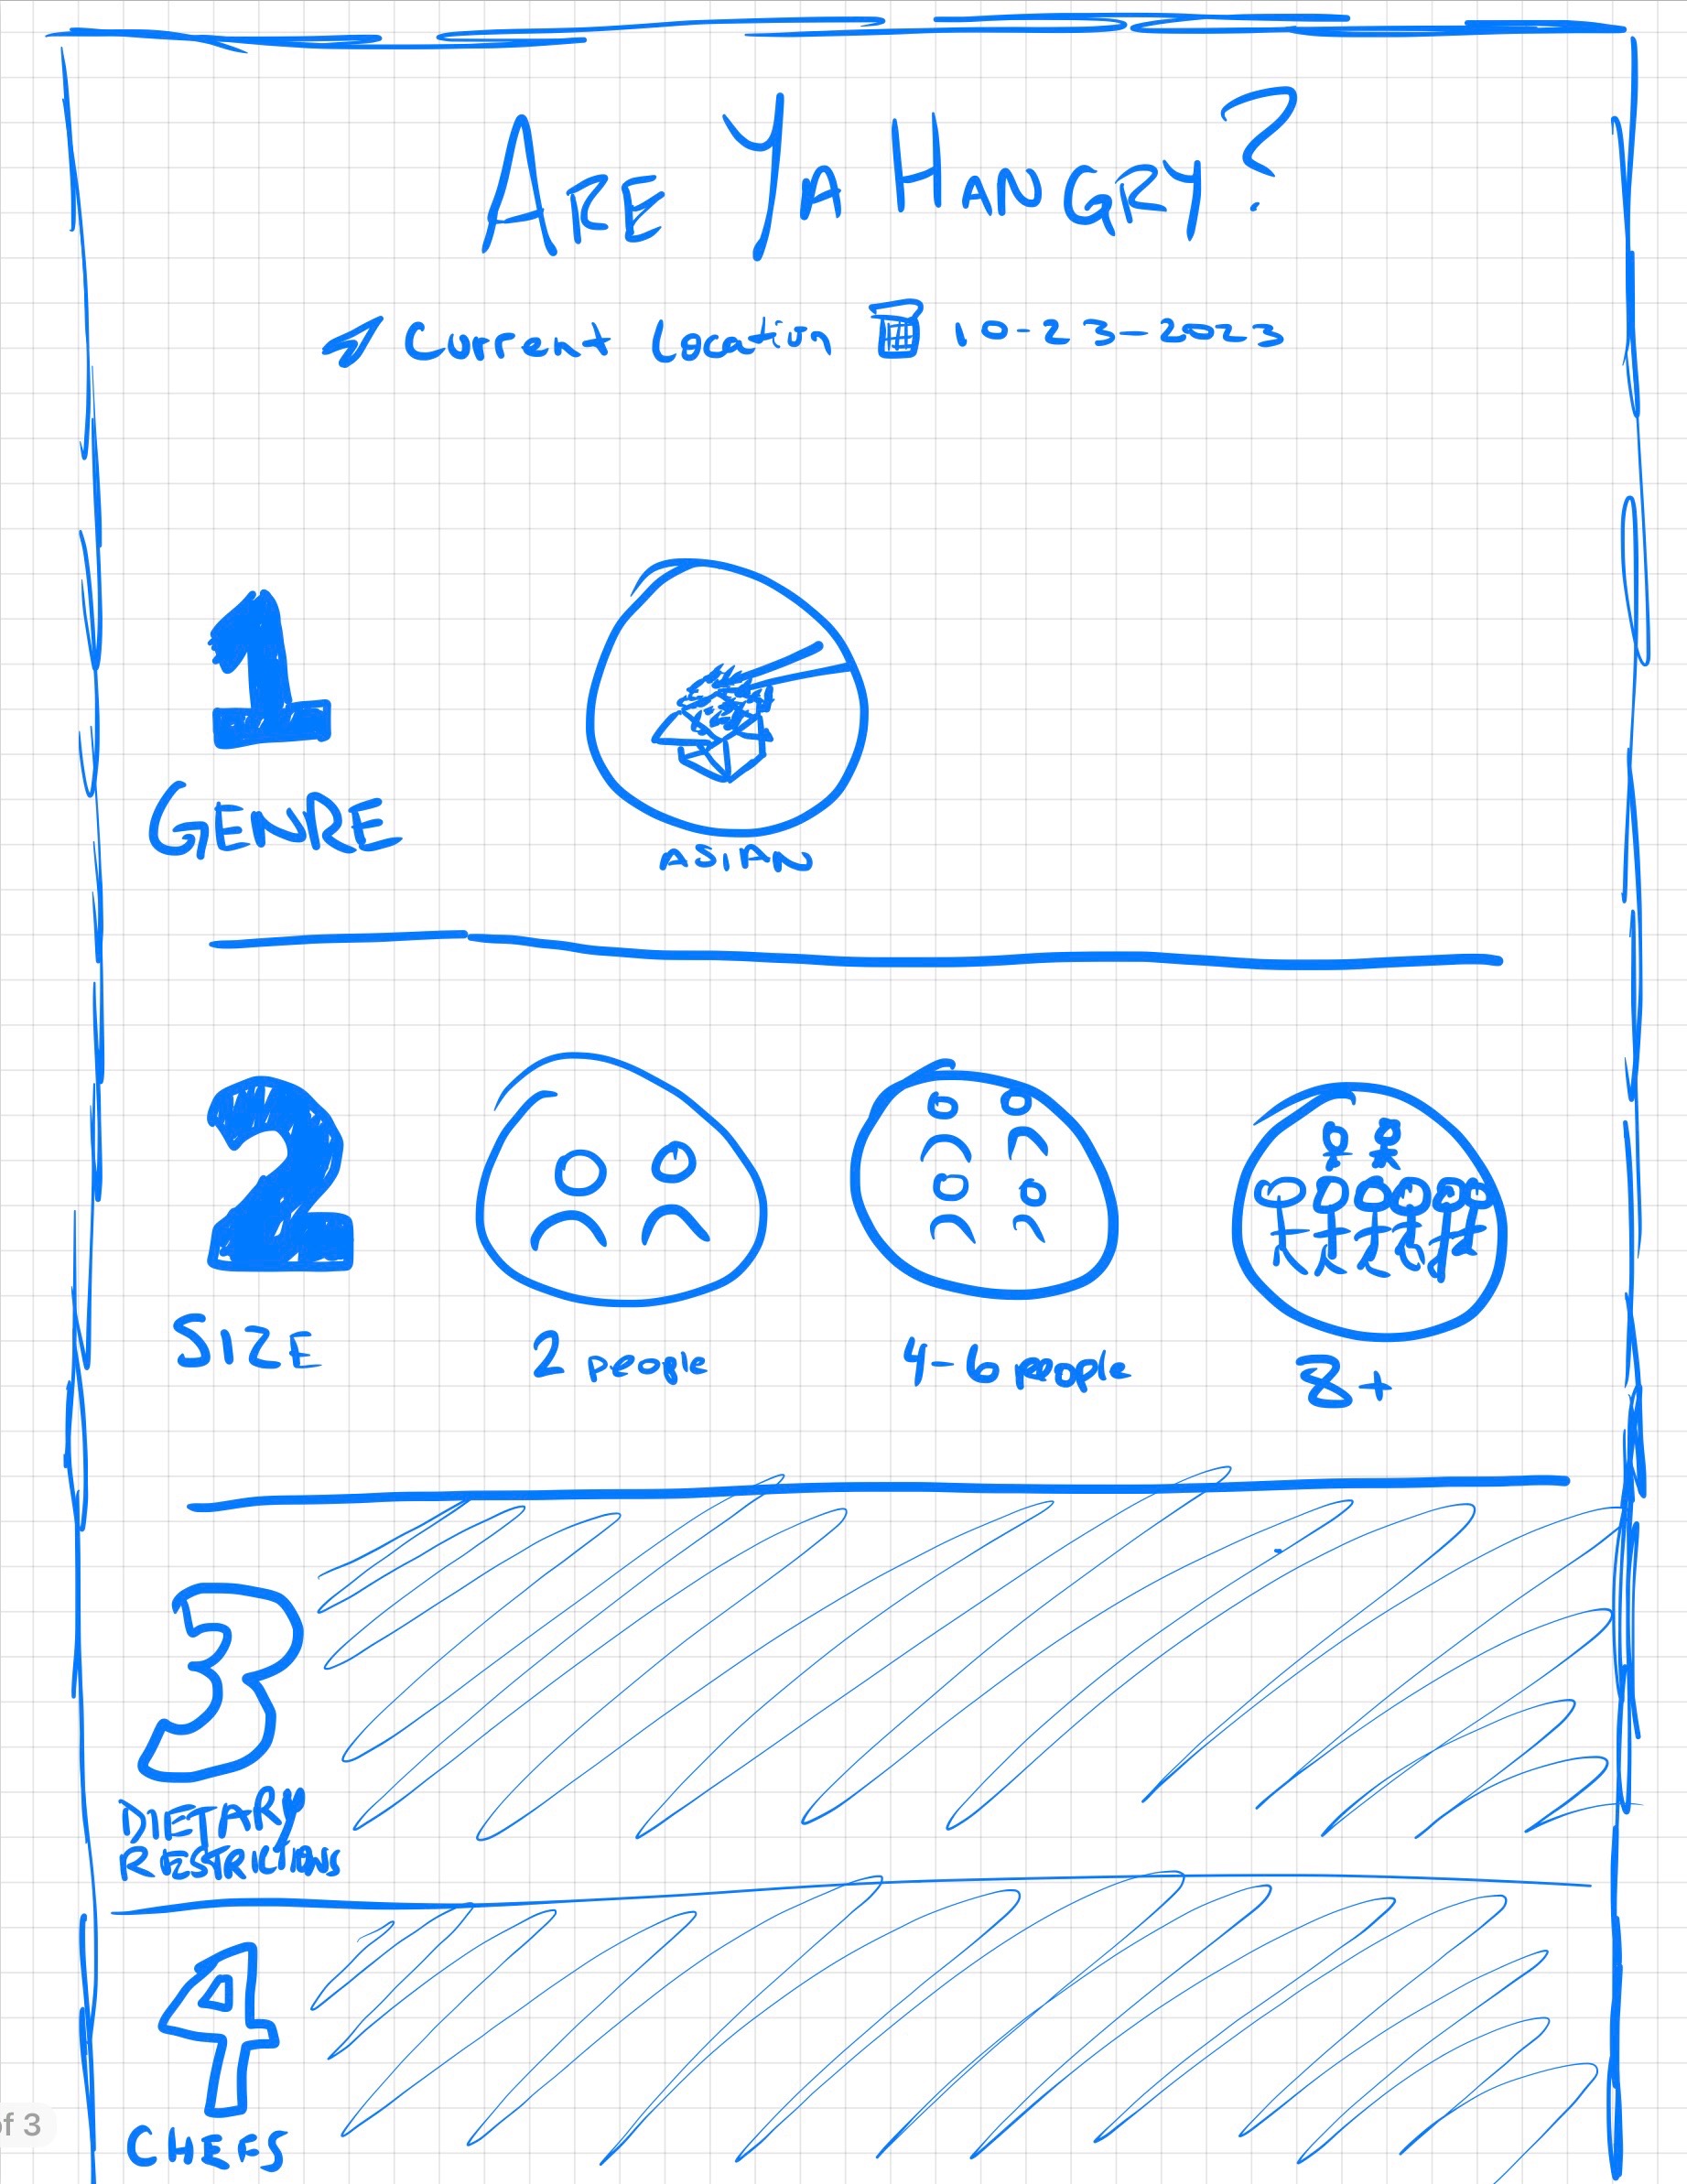 ARE YA HANGRY?
Current Location 10-23-2023
1
GENRE
ASIAN
2
SIZE
2 people
4-6 people
8+
3
DIETARY
RESTRICTIONS
4
CHEFS
of 3